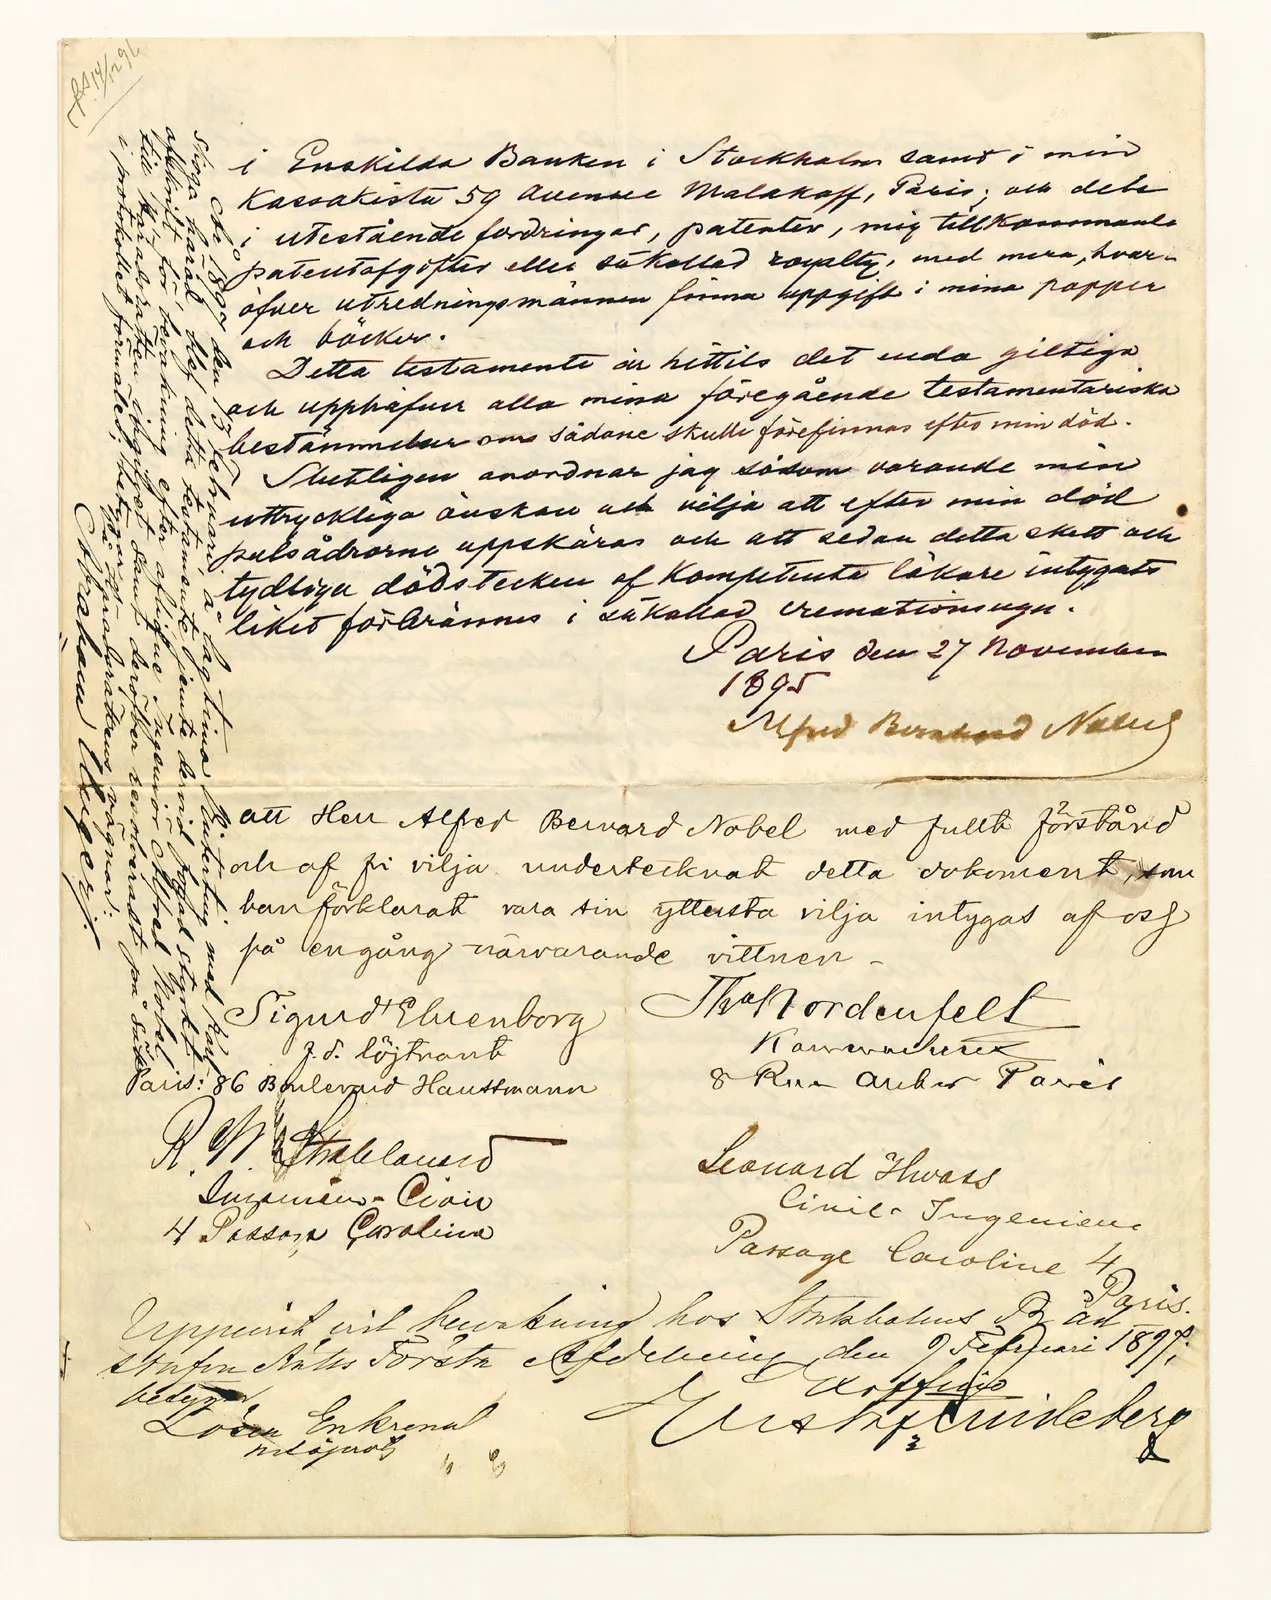 i Enskilda Banken i Stockholm samt i min
Kassakista 59 Avenue Malakoff, Paris; och dels
i utestående fordringar, patenter, mig tillkommande
patentafgifter eller såkallad royalty, med mera, hvar-
öfver utredningsmännen finna uppgift i mina papper
och böcker.
Detta testamente är hittils det enda giltiga
och upphäfver alla mina föregående testamentariska
bestämmelser om sådane skulle förefinnas efter min död.
Slutligen anordnar jag såsom varande min
uttryckliga önskan och vilja att efter min död
pulsådrorne uppskäras och att sedan detta skett och
tydliga dödstecken af Kompetenta läkare intygats
liket förbrännes i såkallad cremationsugn.
Paris den 27 November
1895
Alfred Bernhard Nobel
att Herr Alfred Bernard Nobel med fullt förstånd
och af fri vilja undertecknat detta dokument, som
han förklarat vara sin yttersta vilja intygas af oss
på engång närvarande vittnen -
Sigurd Ehrenborg
f.d. löjtnant
Paris: 86 Boulevard Haussmann
Ths Nordenfelt
8 Rue Auber Paris
R. W. Strehlenert
Ingenieur-Civil
4 Passage Caroline
Leonard Hwass
Civil-Ingenieur
Passage Caroline 4
Paris.
Uppvist vid bevakning hos Stockholms Råd
stufvu Rätts Första Afdelning den 9 Februari 1897;
betygar
På Embetets vägnar:
Abraham Unger
År 1897 den 13 Februari, å lagtima Vinterting med Karl
skoga härad, blef detta testamente jemte dervid fogad skrift
för bevakning efter aflidne Ingeniör Alfred Nobel
till Häradsrätten ingifvet samt deröfver resolveradt på sätt
i protokollet förmäles; betygar
På Häradsrättens vägnar: